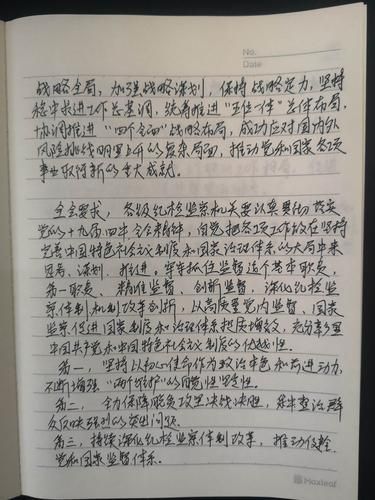 No.
Date
战略全局，加强战略谋划，保持战略定力，坚持
稳中求进工作总基调，统筹推进“五位一体”总体布局，
协调推进“四个全面”战略布局，成功应对国内外
风险挑战明显上升的复杂局面，推动党和国家各项
事业取得新的重大成就。
全会要求，各级纪检监察机关要认真贯彻落实
党的十九届四中全会精神，自觉把各项工作放在坚持
完善中国特色社会主义制度和国家治理体系的大局中来
思考、谋划、推进，牢牢抓住监督这个基本职责、
第一职责、精准监督、创新监督，深化纪检监
察体制机制改革创新，以高质量党内监督、国家
监察促进国家制度和治理体系提质增效，充分彰显
中国共产党和中国特色社会主义制度的优越性。
第一，坚持以初心使命作为政治本色和前进动力，
不断增强“两个维护”的自觉性坚定性。
第二，全力保障脱贫攻坚决战决胜，集中查治群
众反映强烈的突出问题。
第三，持续深化纪检监察体制改革，推动健全
党和国家监督体系。
Maxleaf